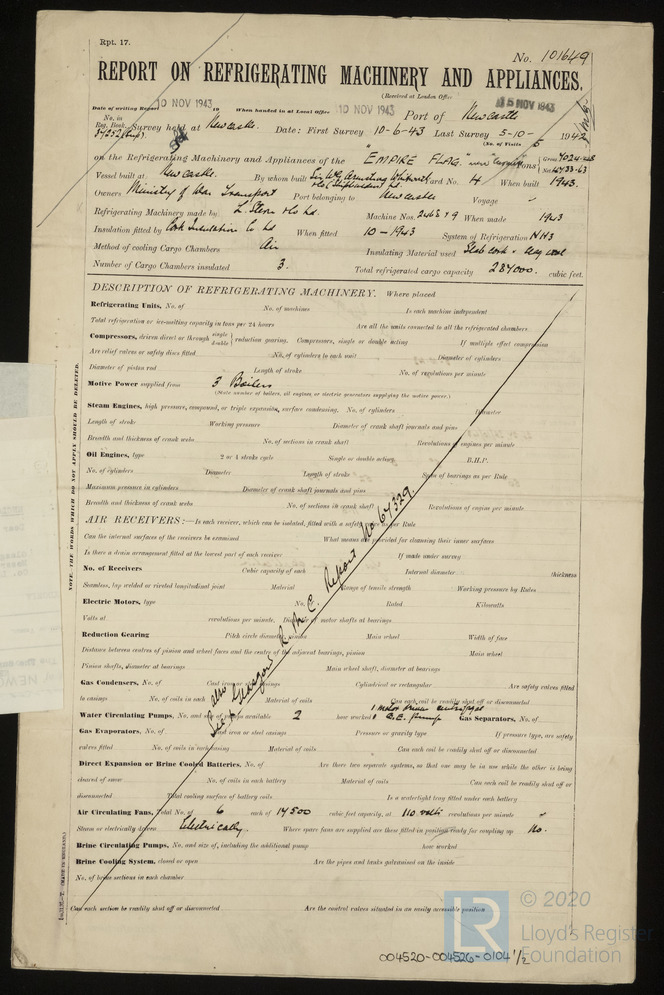 Rpt. 17.
No. 101649
REPORT ON REFRIGERATING MACHINERY AND APPLIANCES.
(Received at London Office
Date of writing Report 10 NOV 1943 19 When handed in at Local Office 10 NOV 1943 Port of Newcastle 15 NOV 1943
No. in Reg. Book. Survey held at Newcastle. Date: First Survey 10-6-43 Last Survey 5-10- 1943
(No. of Visits 5
on the Refrigerating Machinery and Appliances of the "EMPIRE FLAG" Tons Gross Net
Vessel built at Newcastle. By whom built Sir W.G. Armstrong Whitworth & Co (Shipbuilders) Ld. Yard No. 4 When built 1943.
Owners Ministry of War Transport Port belonging to Newcastle Voyage
Refrigerating Machinery made by L. Stern & Co Ld Machine Nos. 2068 & 9 When made 1943
Insulation fitted by Cork Insulation Co Ld When fitted 10-1943 System of Refrigeration NH3
Method of cooling Cargo Chambers Air Insulating Material used Slab cork & slag wool
Number of Cargo Chambers insulated 3. Total refrigerated cargo capacity 287000. cubic feet.
DESCRIPTION OF REFRIGERATING MACHINERY. Where placed
Refrigerating Units, No. of No. of machines Is each machine independent
Total refrigeration or ice-melting capacity in tons per 24 hours Are all the units connected to all the refrigerated chambers
Compressors, driven direct or through single double reduction gearing. Compressors, single or double acting If multiple effect compression
Are relief valves or safety discs fitted No. of cylinders to each unit Diameter of cylinders
Diameter of piston rod Length of stroke No. of revolutions per minute
Motive Power supplied from 3 Boilers
(State number of boilers, oil engines or electric generators supplying the motive power.)
Steam Engines, high pressure, compound, or triple expansion, surface condensing. No. of cylinders Diameter
Length of stroke Working pressure Diameter of crank shaft journals and pins
Breadth and thickness of crank webs No. of sections in crank shaft Revolutions of engines per minute
Oil Engines, type 2 or 4 stroke cycle Single or double acting B.H.P.
No. of cylinders Diameter Length of stroke Span of bearings as per Rule
Maximum pressure in cylinders Diameter of crank shaft journals and pins
Breadth and thickness of crank webs No. of sections in crank shaft Revolutions of engine per minute
AIR RECEIVERS:—Is each receiver, which can be isolated, fitted with a safety as per Rule
Can the internal surfaces of the receivers be examined What means are provided for cleansing their inner surfaces
Is there a drain arrangement fitted at the lowest part of each receiver If made under survey
No. of Receivers Cubic capacity of each Internal diameter thickness
Seamless, lap welded or riveted longitudinal joint Material Range of tensile strength Working pressure by Rules
Electric Motors, type No. Rated Kilowatts
Volts at revolutions per minute. Diameter of motor shafts at bearings
Reduction Gearing Pitch circle diameter, pinion Main wheel Width of face
Distance between centres of pinion and wheel faces and the centre of the adjacent bearings, pinion Main wheel
Pinion shafts, diameter at bearings Main wheel shaft, diameter at bearings
Gas Condensers, No. of Cast iron or steel casings Cylindrical or rectangular Are safety valves fitted
to casings No. of coils in each Material of coils Can each coil be readily shut off or disconnected
Water Circulating Pumps, No. and size of available 2 how worked 1 motor driven centrifugal 1 G.E. pump Gas Separators, No. of
Gas Evaporators, No. of Cast iron or steel casings Pressure or gravity type If pressure type, are safety
valves fitted No. of coils in each casing Material of coils Can each coil be readily shut off or disconnected
Direct Expansion or Brine Cooled Batteries, No. of Are there two separate systems, so that one may be in use while the other is being
cleared of snow No. of coils in each battery Material of coils Can each coil be readily shut off or
disconnected Total cooling surface of battery coils Is a watertight tray fitted under each battery
Air Circulating Fans, Total No. of 6 each of 14500 cubic feet capacity, at 110 volts revolutions per minute
Steam or electrically driven Electrically. Where spare fans are supplied are these fitted in position ready for coupling up No.
Brine Circulating Pumps, No. and size of, including the additional pump how worked
Brine Cooling System, closed or open Are the pipes and tanks galvanised on the inside
No. of brine sections in each chamber
Can each section be readily shut off or disconnected Are the control valves situated in an easily accessible position
See also Glasgow R.M.C. Report No 67329.
NOTE. THE WORDS WHICH DO NOT APPLY SHOULD BE DELETED.
(MADE IN ENGLAND.)
LR
© 2020
Lloyd's Register
Foundation
004520-004526-0104 1/2